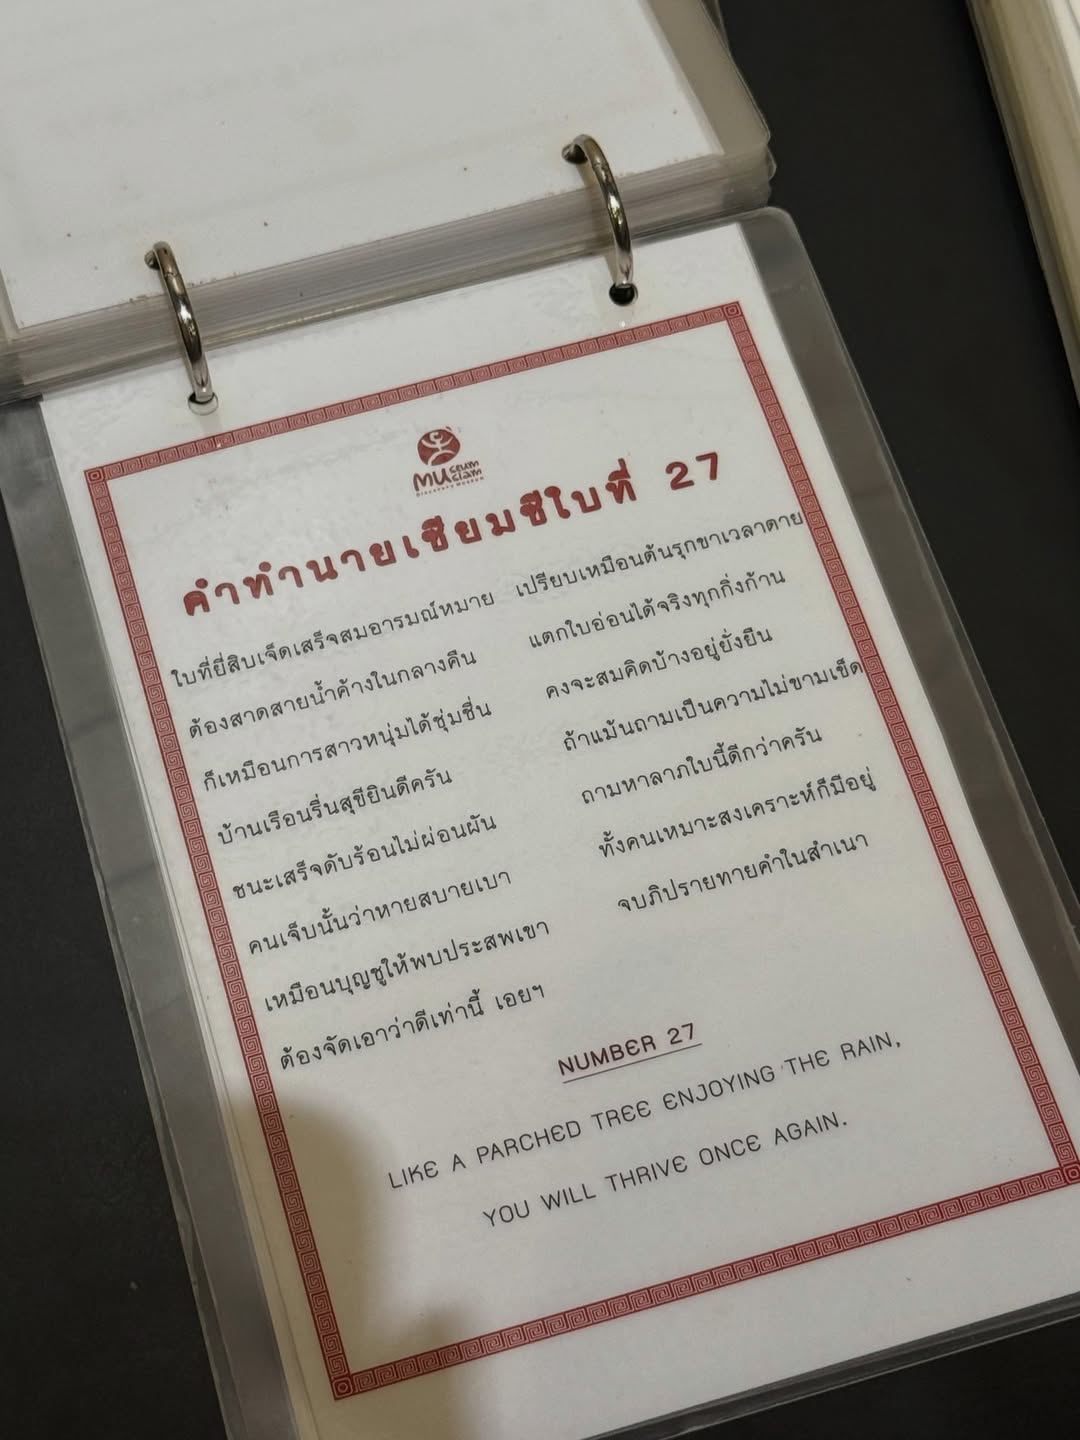 MUSEUM
SIAM
Discovery Museum
คำทำนายเซียมซีใบที่ 27
ใบที่ยี่สิบเจ็ดเสร็จสมอารมณ์หมาย เปรียบเหมือนต้นรุกขาเวลาตาย
ต้องสาดสายน้ำค้างในกลางคืน แตกใบอ่อนได้จริงทุกกิ่งก้าน
ก็เหมือนการสาวหนุ่มได้ชุ่มชื่น คงจะสมคิดบ้างอยู่ยั่งยืน
บ้านเรือนรื่นสุขียินดีครัน ถ้าแม้นถามเป็นความไม่ขามเข็ด
ชนะเสร็จดับร้อนไม่ผ่อนผัน ถามหาลาภใบนี้ดีกว่าครัน
คนเจ็บนั้นว่าหายสบายเบา ทั้งคนเหมาะสงเคราะห์ก็มีอยู่
เหมือนบุญชูให้พบประสพเขา จบภิปรายทายคำในสำเนา
ต้องจัดเอาว่าดีเท่านี้ เอยฯ
NUMBER 27
LIKE A PARCHED TREE ENJOYING THE RAIN,
YOU WILL THRIVE ONCE AGAIN.